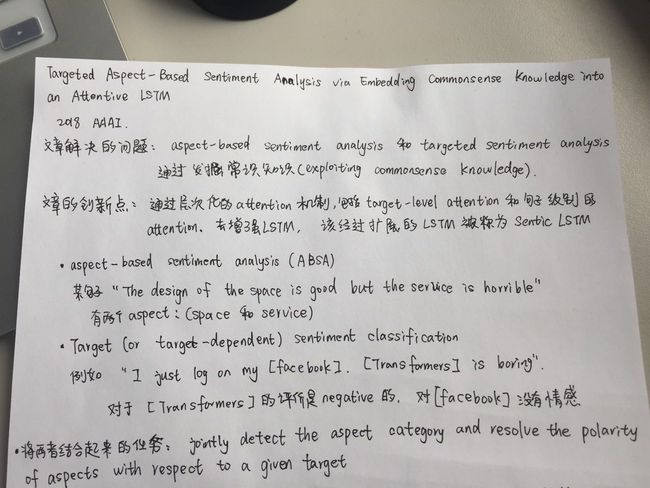 Targeted Aspect-Based Sentiment Analysis via Embedding Commonsense Knowledge into
an Attentive LSTM
2018 AAAI.
文章解决的问题: aspect-based sentiment analysis 和 targeted sentiment analysis
通过 发掘常识知识(exploiting commonsense knowledge).
文章的创新点: 通过层次化的attention 机制, target-level attention 和句子级别的
attention. 去增强LSTM, 该经过扩展的LSTM 被称为 Sentic LSTM
• aspect-based sentiment analysis (ABSA)
某句子 "The design of the space is good but the service is horrible"
有两个aspect: (space 和 service)
• Target (or target-dependent) sentiment classification
例如 "I just log on my [facebook]. [Transformers] is boring".
对于 [Transformers] 的评价是negative 的, 对[facebook] 没有情感
• 将两者结合起来的任务: jointly detect the aspect category and resolve the polarity
of aspects with respect to a given target